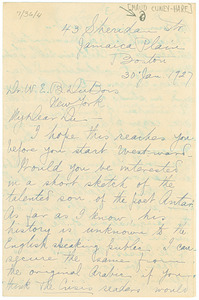 [MAUD CUNEY-HARE]
43 Sheridan St.
Jamaica Plain
Boston
30 Jan 1927
Dr. W. E. B. DuBois
New York
My Dear Du—
I hope this reaches you
before you start Westward.
Would you be interested
in a short sketch of the
talented son of the poet Antar
As far as I know, his
history is unknown to the
English speaking public. I can
secure the same from
the original Arabic if you
think the Crisis readers would